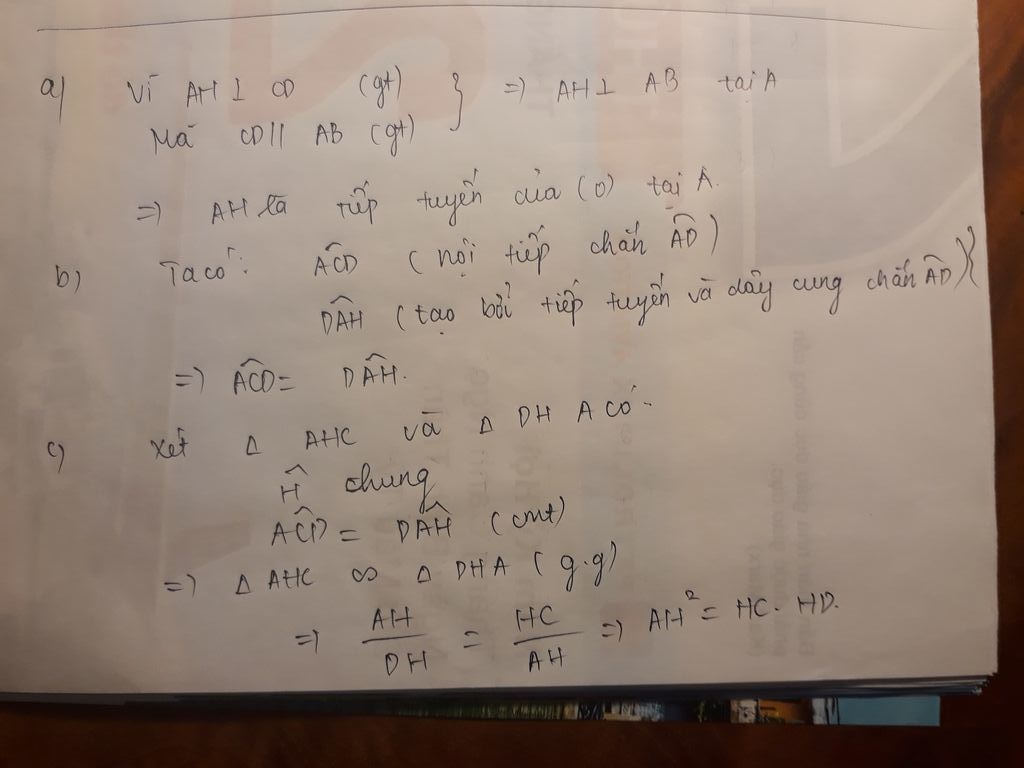 a) Vì AH ⊥ CD (gt) } => AH ⊥ AB tại A
Mà CD // AB (gt)
=> AH là tiếp tuyến của (O) tại A.
b) Ta có: ACD^ (nội tiếp chắn AD^)
DAH^ (tạo bởi tiếp tuyến và dây cung chắn AD^) }
=> ACD^ = DAH^.
c) Xét Δ AHC và Δ DHA có -
H^ chung
ACD^ = DAH^ (cmt)
=> Δ AHC ∽ Δ DHA (g.g)
=> AH/DH = HC/AH => AH² = HC. HD.